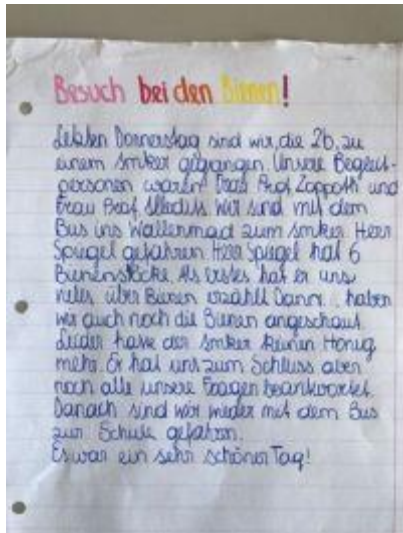 Besuch bei den Bienen!
Letzten Donnerstag sind wir, die 2b, zu
einem Imker gegangen. Unsere Begleit-
personen waren Frau Prof. Zoppoth und
Frau Prof. wir sind mit dem
Bus ins Wallenmad zum Imker Herr
Spiegel gefahren. Herr Spiegel hat 6
Bienenstöcke. Als erstes hat er uns
vieles über Bienen erzählt. Dann haben
wir auch noch die Bienen angeschaut.
Leider hatte der Imker keinen Honig
mehr. Er hat uns zum Schluss aber
noch alle unsere Fragen beantwortet.
Danach sind wir wieder mit dem Bus
zur Schule gefahren.
Es war ein sehr schöner Tag!